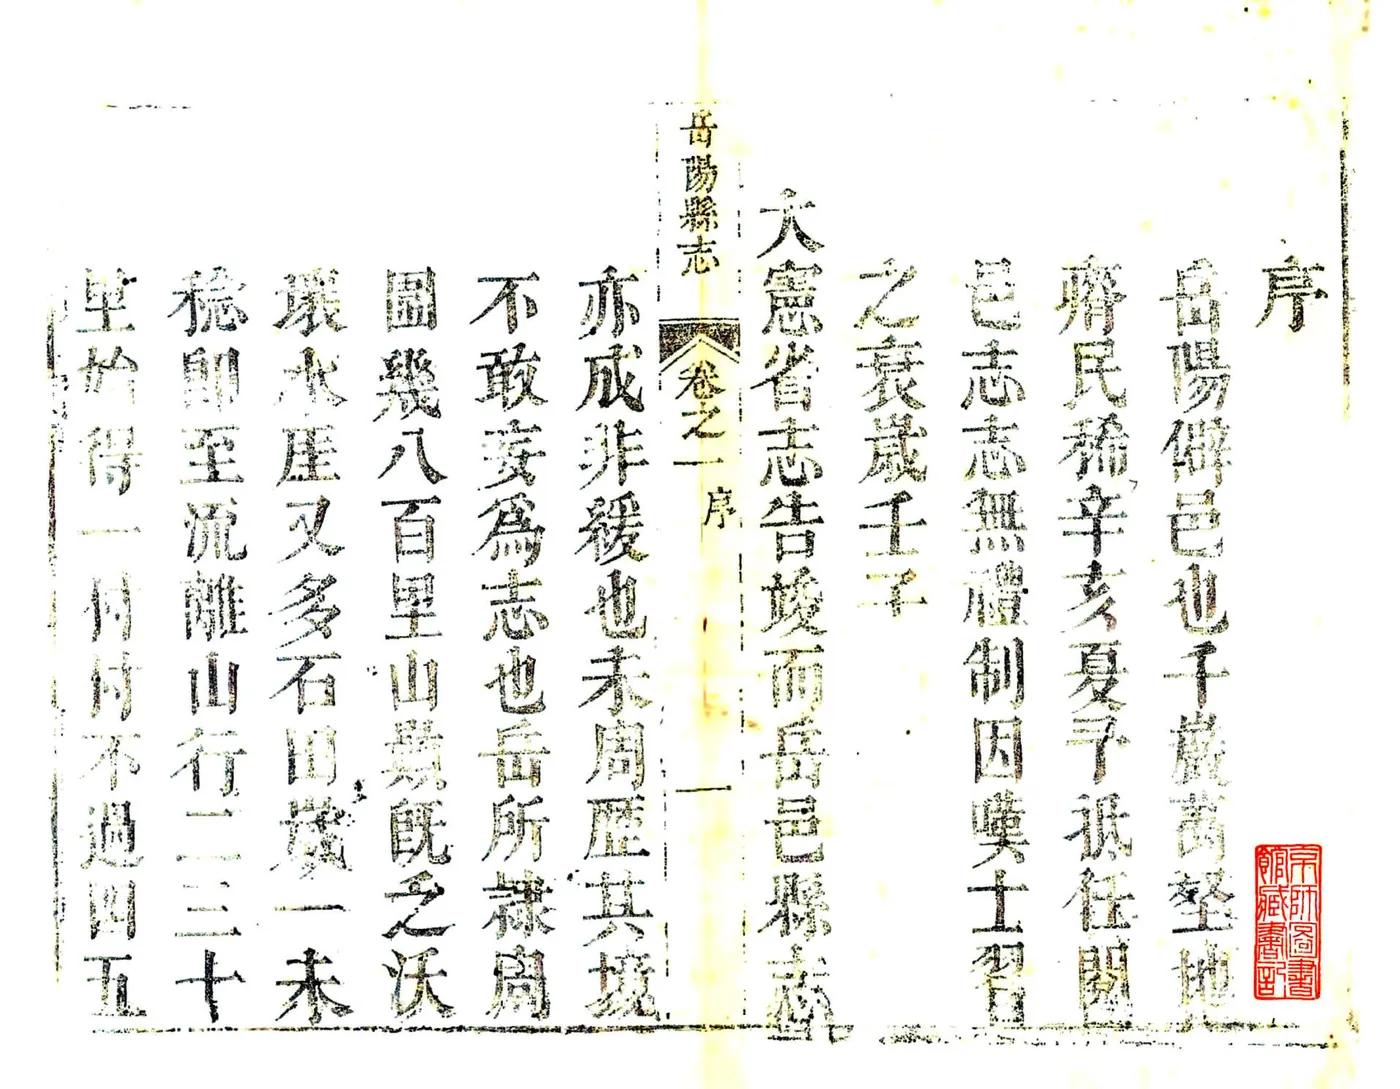 序
岳陽僻邑也千巖萬壑地
瘠民稀辛亥夏予祗任閱
邑志志無禮制因嘆士習
之衰歲壬子
大憲省志告竣而岳邑縣志
岳陽縣志
卷之一
序
一
亦成非緩也未周歷其境
不敢妄爲志也岳所隸周
圖幾八百里山巖旣乏沃
壤水厓又多石田歲一未
稔卽至流離山行二三十
里始得一村村不過四五
京師圖書
館藏書記